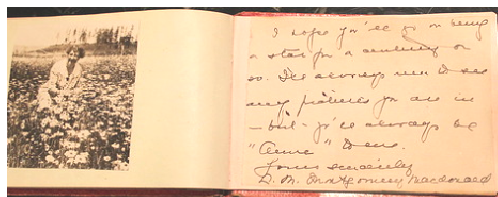 I hope you'll go on being
a star for a century or
so. I'll always see
any pictures you are in
— but you'll always be
"Anne"
Yours sincerely
L. M. Montgomery Macdonald